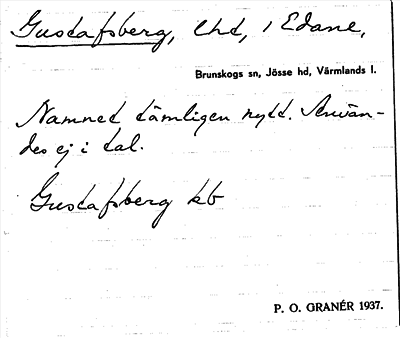 Gustafsberg, lhd, i Edane,
Brunskogs sn, Jösse hd, Värmlands l.
Namnet tämligen nytt. Använ-
des ej i tal.
Gustafsberg kb
P. O. GRANÉR 1937.